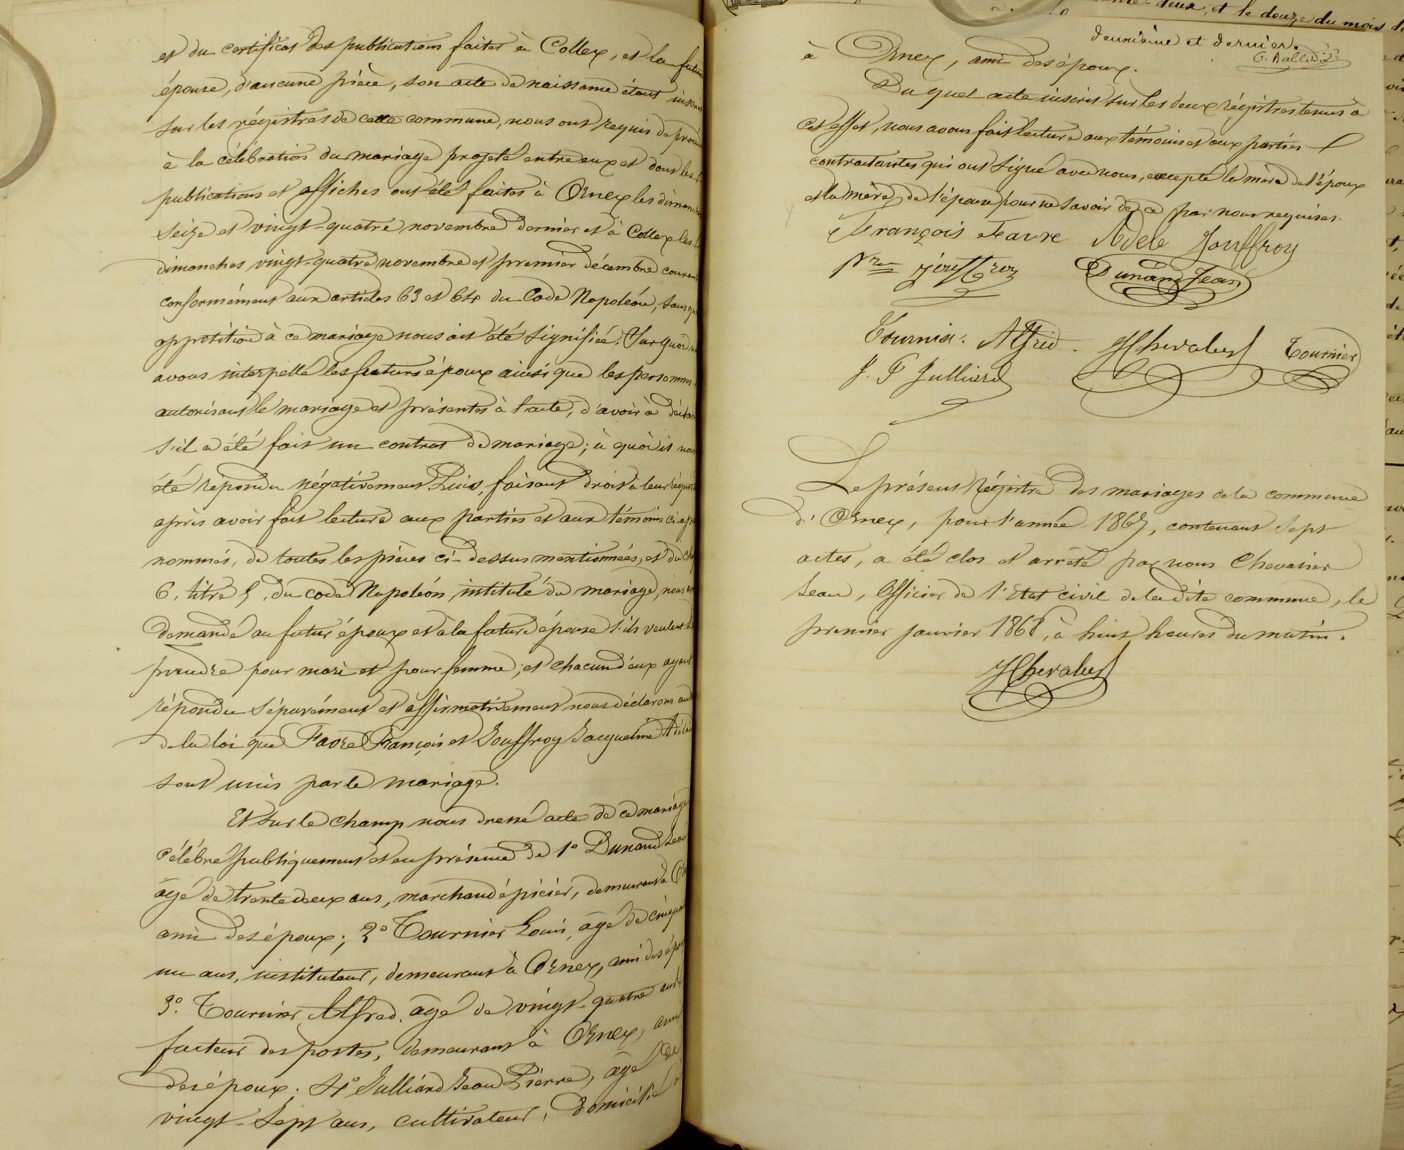 et du certificat des publications faites à Collex, et la future
épouse, d'aucune pièce, son acte de naissance étant inscrit
sur les régistres de cette commune, nous ont requis de procéder
à la célébration du mariage projeté entre eux et dont les
publications et affiches ont été faites à Ornex les dimanches
seize et vingt-quatre novembre dernier et à Collex les
dimanches vingt-quatre novembre et premier décembre courant
conformément aux articles 63 et 64 du Code Napoléon, sans qu'
opposition à ce mariage nous ait été signifiée. Sur quoi
avons interpellé les futurs époux ainsi que les personnes
autorisant le mariage et présentes à l'acte, d'avoir à déclarer
s'il a été fait un contrat de mariage; à quoi il nous
été répondu négativement. Puis, faisant droit à leur réquisition
après avoir fait lecture aux parties et aux témoins ci-après
nommés, de toutes les pièces ci-dessus mentionnées, et du chap
6, titre 5, du code Napoléon intitulé du mariage, nous
demandé au futur époux et à la future épouse s'ils veulent se
prendre pour mari et pour femme; et chacun d'eux ayant
répondu séparément et affirmativement nous déclarons au
de la loi que Favre François et Jouffroy Jacqueline Adèle
sont unis par le mariage.
Et sur le champ nous dressé acte de ce mariage
célébré publiquement et en présence de 1º Dunand Jean
âgé de trente deux ans, marchand épicier, demeurant à
ami des époux; 2º Tournier Louis, âgé de cinquante
un ans, instituteur, demeurant à Ornex, ami des époux
3º. Tournier Alfred, âgé de vingt-quatre ans
facteur des postes, demeurant à Ornex, ami
des époux; 4º Julliard Jean Pierre, âgé de
vingt-sept ans, cultivateur, domicilié
deux, et le douze du mois
deuxième et dernier.
à Ornex, ami des époux.
Du quel acte inscrit sur les deux régistres tenus à
cet effet, nous avons fait lecture aux témoins et aux parties
contractantes qui ont signé avec nous, excepté la mère de l'époux
et la mère de l'épouse pour ne savoir de ce par nous requises.
François Favre Adèle Jouffroy
Jouffroy Dunand Jean
Tournier Alfred JChevalier Tournier
J. P Julliard
Le présent Régistre des mariages de la commune
d'Ornex, pour l'année 1867, contenant sept
actes, a été clos et arrêté par nous Chevalier
Jean, Officier de l'Etat civil de la dite commune, le
premier janvier 1868, à huit heures du matin.
JChevalier